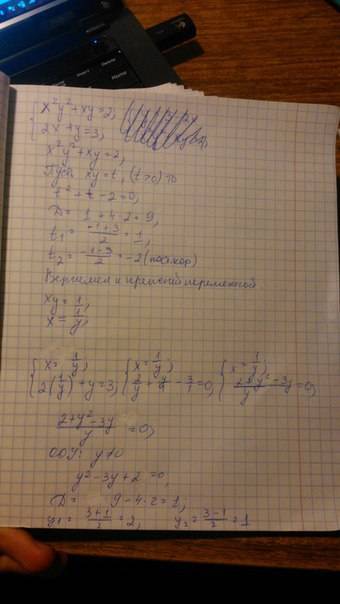 x²y²+xy=2,
2x+y=3,
x²y²+xy=2,
Пусть xy=t, (t>0)
t²+t-2=0,
D= 1+4·2=9,
t₁= (-1+3)/2=1,
t₂= (-1-3)/2=-2
Вернемся к прежней переменной
xy=1,
x=1/y,
{x=1/y, 2(1/y)+y=3; {x=1/y, 2/y+y/1-3/1=0, {x=1/y, (2+y²-3y)/y=0,
(2+y²-3y)/y=0,
ОДУ: y≠0
y²-3y+2=0,
D= 9-4·2=1,
y₁= (3+1)/2=2, y₂=(3-1)/2=1